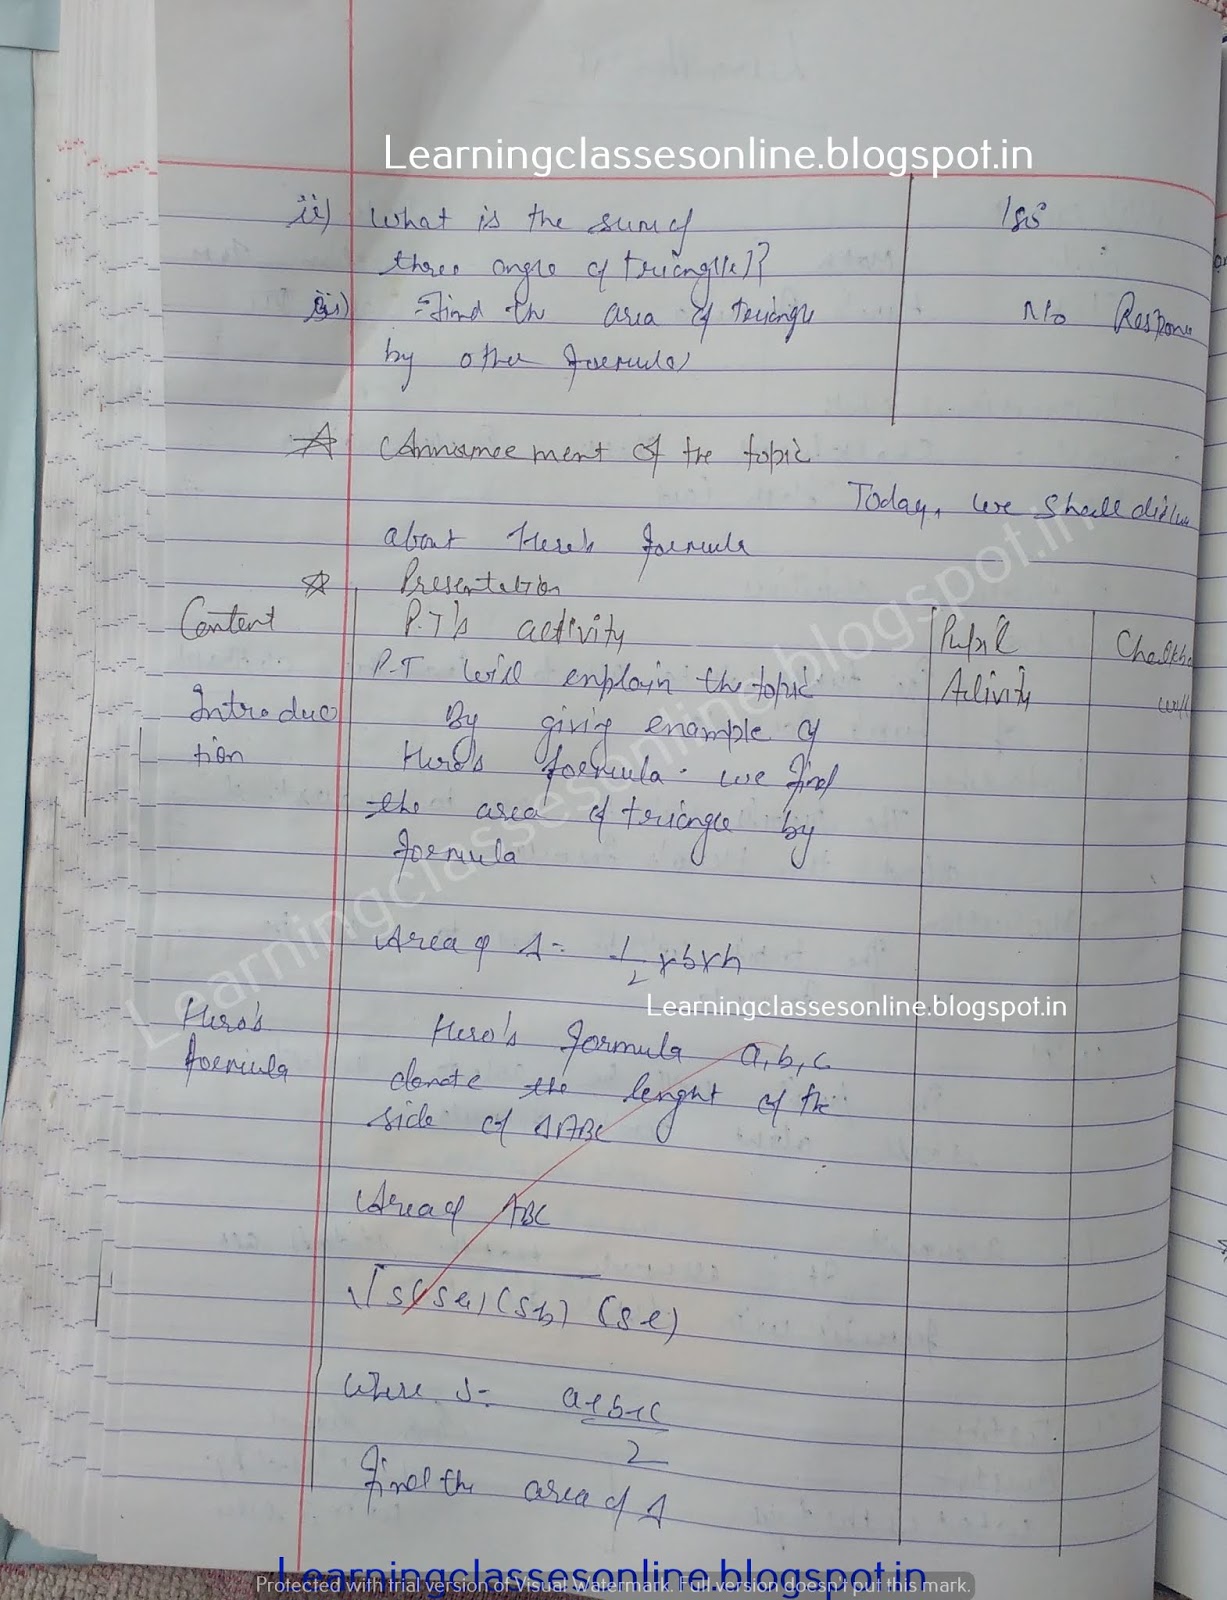 Learningclassesonline.blogspot.in
ii) What is the sum of 180°
three angle of triangle?
iii) Find the area of triangle No Response
by other formula
Announcement of the topic
Today, we shall
about Hero's formula
Presentation
Content P.T's activity Pupil
P.T will explain the topic Activity
Introduc By giving example of
tion Hero's formula. we find
the area of triangle by
formula
Area of Δ = 1/2 x b x h
Learningclassesonline.blogspot.in
Hero's Hero's formula a, b, c
formula denote the lenght of the
side of ΔABC
Area of ABC
√s(s-a)(s-b)(s-c)
where s = a+b+c
2
Find the area of Δ
Learningclassesonline.blogspot.in
Learningclassesonline.blogspot.in
Protected with trial version of Visual Watermark. Full version doesn't put this mark.